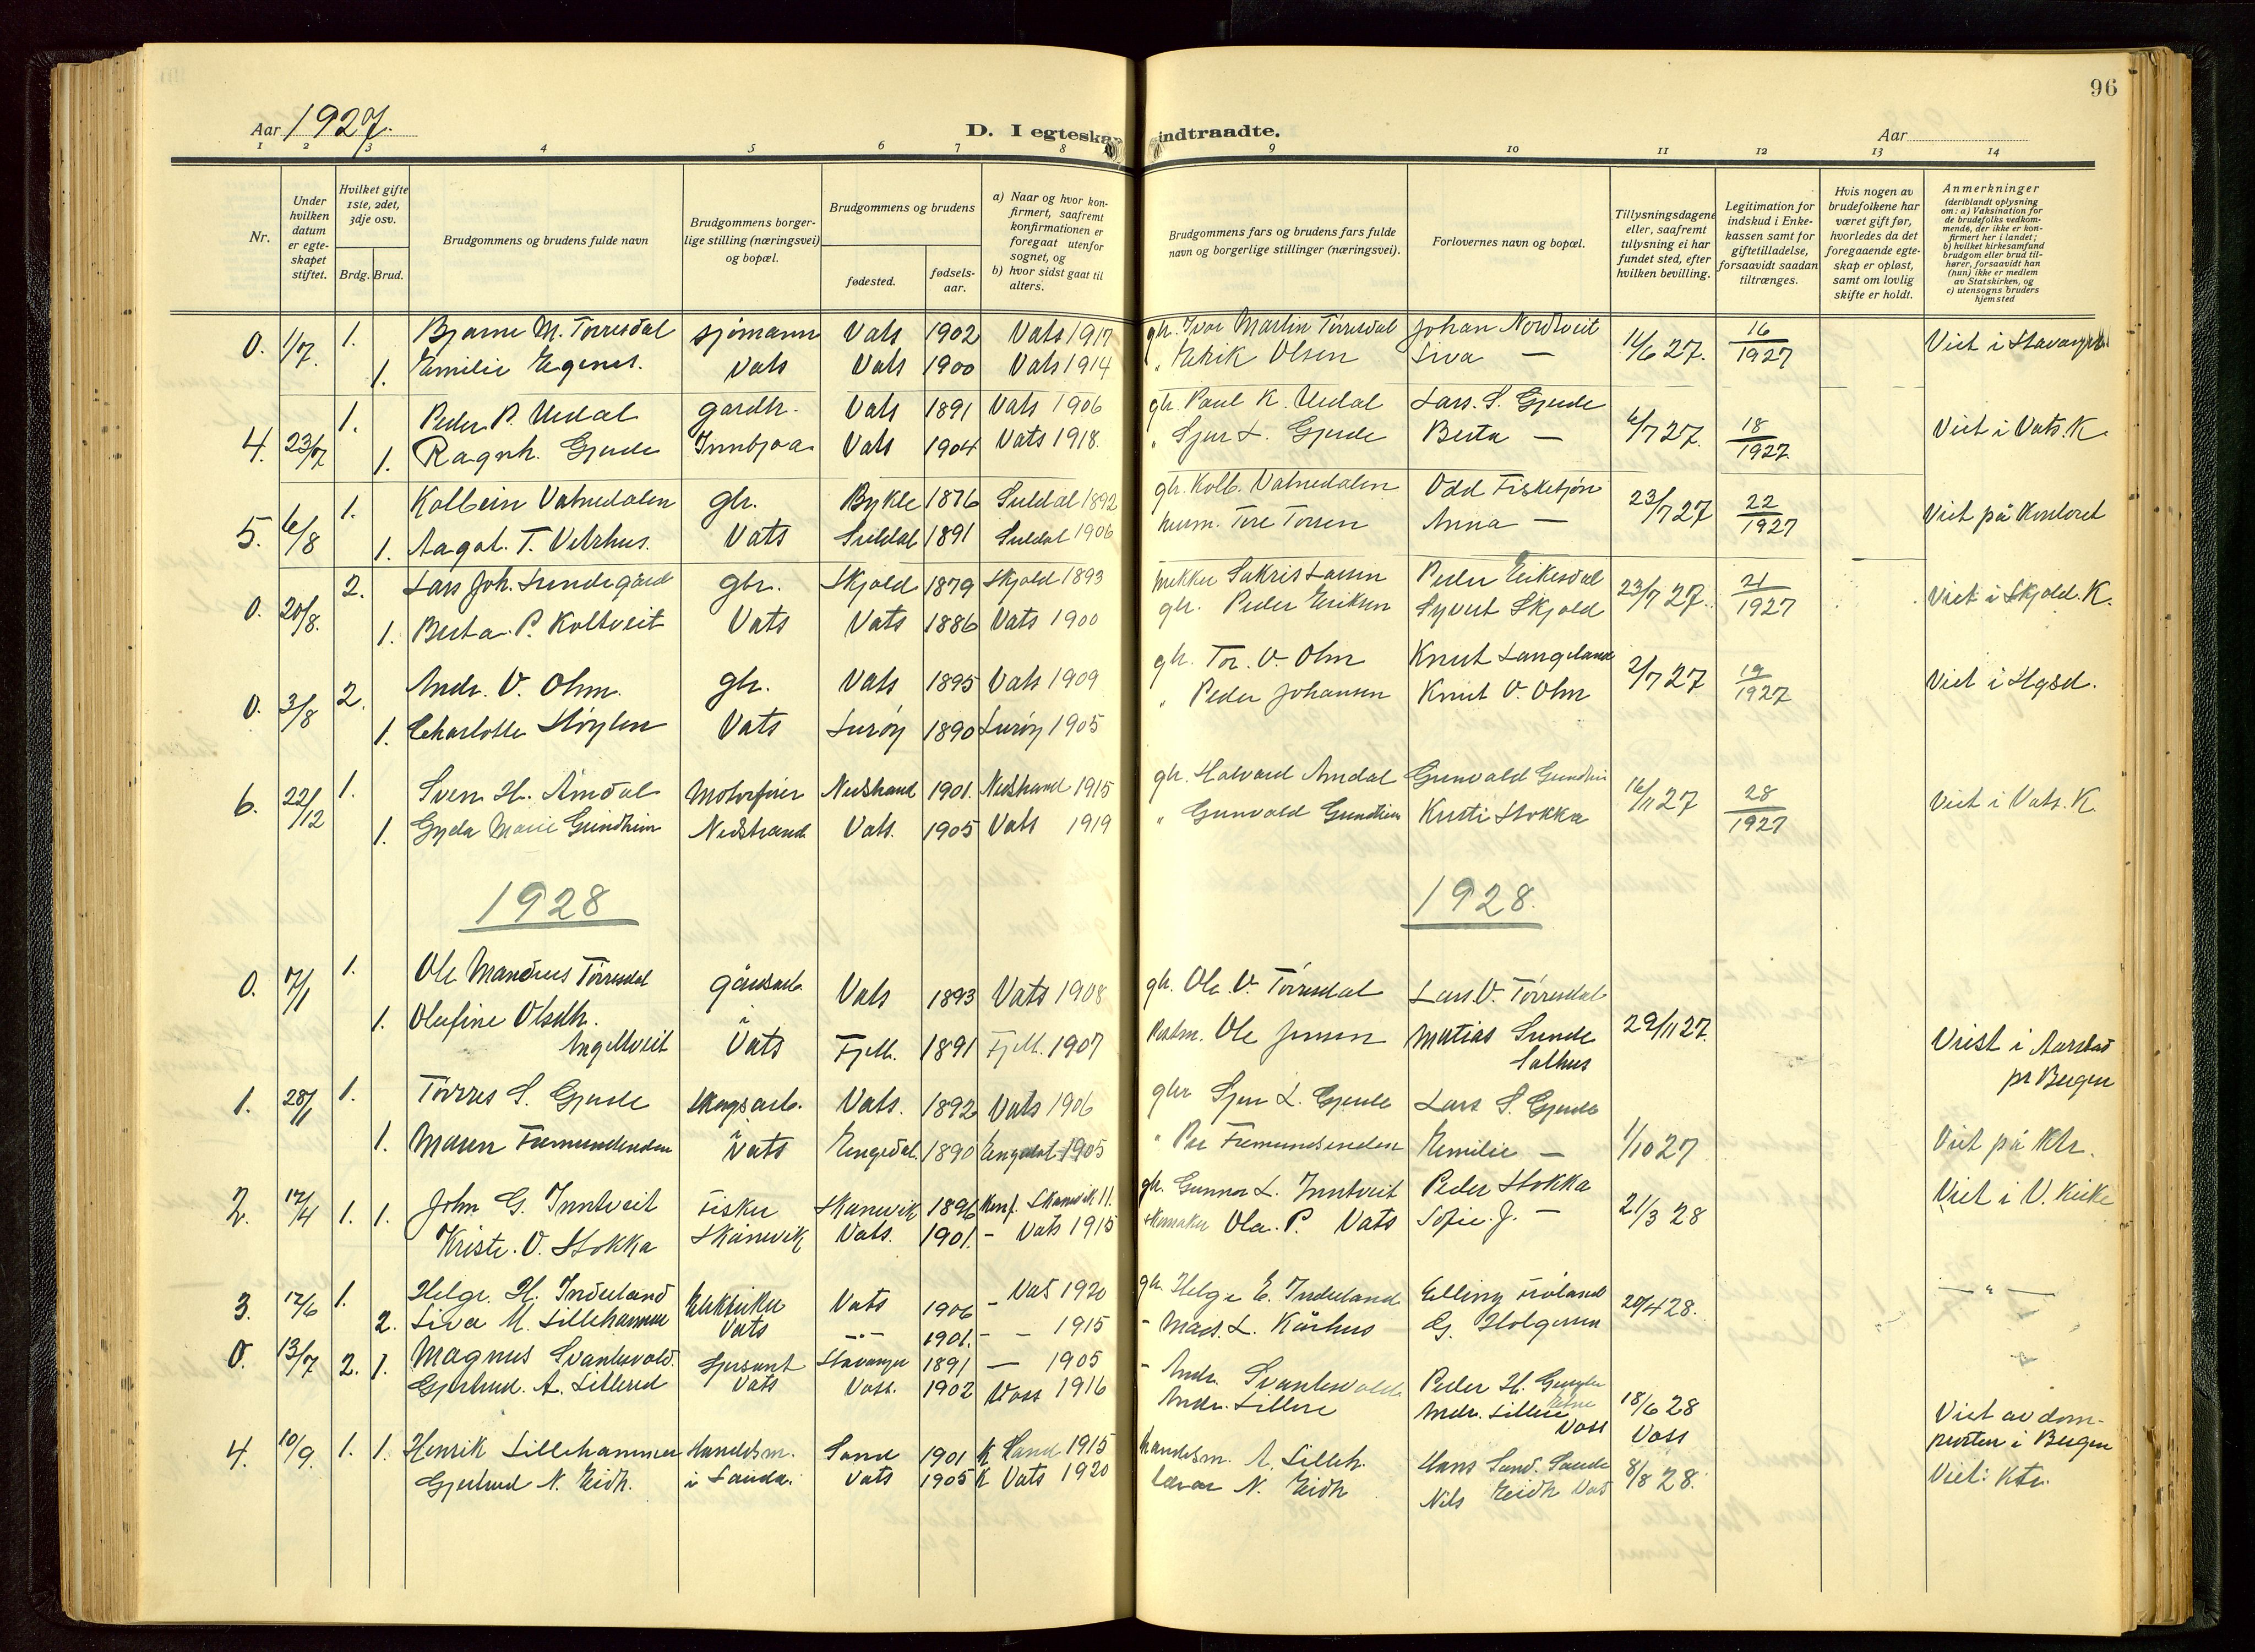 96
Aar 1927.
D. I egteskap indtraadte.
Aar
1 2 3 4 5 6 7 8 9 10 11 12 13 14
Nr.
Under hvilken datum er egteskapet stiftet.
Hvilket gifte 1ste, 2det, 3dje osv.
Brdg. Brud.
Brudgommens og brudens fulde navn
Brudgommens borgerlige stilling (næringsvei) og bopæl.
Brudgommens og brudens
fødested.
fødselsaar.
a) Naar og hvor konfirmert, saafremt konfirmationen er foregaat utenfor sognet, og
b) hvor sidst gaat til alters.
Brudgommens fars og brudens fars fulde navn og borgerlige stillinger (næringsvei).
Forlovernes navn og bopæl.
Tillysningsdagene eller, saafremt tillysning ei har fundet sted, efter hvilken bevilling.
Legitimation for indskud i Enkekassen samt for giftetilladelse, forsaavidt saadan tiltrænges.
Hvis nogen av brudefolkene har været gift før, hvorledes da det foregaaende egteskap er opløst, samt om lovlig skifte er holdt.
Anmerkninger (deriblandt oplysning om: a) Vaksination for de brudefolks vedkommende, der ikke er konfirmert her i landet; b) hvilket kirkesamfund brudgom eller brud tilhører, forsaavidt han (hun) ikke er medlem av Statskirken, og c) utensogns bruders hjemsted
0. 1/7. 1. Bjarne M. Tørresdal sjømann Vats 1902 Vats 1917 gbr. Ivar Martin Tørresdal Johan Nordtveit 11/6 27. 16/1927 Viet i Stavanger
1. Emilie Egenes. Vats Vats 1900 Vats 1914 " Eirik Olsen Siva —
4. 23/7 1. Peder P. Uedal gardbr. Vats 1891 Vats 1906 gbr. Paul K. Uedal Lars. S. Gjerde 6/7 27. 18/1927 Viet i Vats. K.
1. Ragnh. Gjerde Innbjoa Vats 1904 Vats 1918. " Sjur L. Gjerde Berta —
5. 6/8 1. Kolbein Vatnedalen gbr. Bykle 1876 Suldal 1892 gbr. Kolb. Vatnedalen Odd Fisketjøn 23/7 27 22/1927 Viet på Kontoret
1. Aagot. T. Vetrhus. Vats Suldal 1891 Suldal 1906 husm. Tore Torsen Anna —
0. 20/8. 2. Lars Joh. Sundegård gbr. Skjold 1879 Skjold 1893 Sakris Larsen Peder Eikesdal 23/7 27. 21/1927 Viet i Skjold. K.
1. Berta. P. Koltveit Vats Vats 1886 Vats 1900 gbr. Peder Eriksen Syvert Skjold
0. 3/8 2. Andr. V. Ohm. gbr. Vats 1895 Vats 1909 gbr. Tor. V. Ohm Knut Langeland 2/7 27 19/1927 Viet i Hgsd.
1. Charlotte Høylen Vats Lurøy 1890 Lurøy 1905 " Peder Johansen Knut V. Ohm
6. 22/12 1. Sven H. Åmdal Motorfører Nedstrand 1901. Nedstrand 1915 gbr. Halvard Amdal Gunvald Gundhim 16/11 27 28/1927 Viet i Vats. K.
1. Gyda Marie Gundhim Nedstrand Vats. 1905 Vats 1919 " Gunvald Gundhim Kristi Stokka
1928 1928.
0. 7/1 1. Ole Mandius Tørresdal gårdsarb. Vats 1893 Vats 1908 gbr. Ole V. Tørresdal Lars V. Tørresdal
1. Olufine Olsdtr. Angeltveit i Vats Fjell. 1891 Fjell. 1907 Ole Jensen Matias Sunde Salhus 29/11 27. Viet i Aarstad pr Bergen
1. 28/1 1. Tørres S. Gjerde skogsarb. Vats. 1892 Vats 1906 gbr Sjur L. Gjerde Lars S. Gjerde
1. Maren Femundsenden i Vats Engerdal. 1890 Engerdal 1905 " Per Femundsenden Emilie — 1/10 27 Viet på Ktr.
2. 12/4 1. 1. John G. Inntveit Fisker Skånevik 1896 Konf. Skånevik 11. gbr. Gunnar L. Inntveit Peder Stokka 21/3 28 Viet i V. Kirke
Kriste. O. Stokka Skånevik Vats. 1901. - Vats 1915 skomaker Ola. P. Vats Sofie. J. —
3. 12/6 1. Helge. H. Inderland Elektriker Vats 1906 - Vats 1920 gbr. Helge E. Inderland Elling Frøland 20/4 28. — " —
2. Siva M. Lillehammer Vats -"- 1901. - - 1915 - Mads. L. Kårhus G. Holgersen
0. 13/7 2. 1. Magnus Svantesvold. Sersjant Stavanger 1891 — 1905 - Andr. Svantesvold Peder H.
Gjertrud. A. Lillered Vats Voss. 1902 Voss 1916 Andr. Lillere Andr. Lillere Voss 18/6 28 Voss Viet av domprosten i Bergen
4. 10/9. 1. 1. Henrik Lillehammer Handelsm. Sand 1901 K Sand 1915 handelsm. A. Lilleh. Hans Sand. Sauda 8/8 28. Viet: Ktr.
Gjertrud N. Eidh. i Sauda. Vats 1905 K Vats 1920 lærer N. Eidh Nils Eidh Vats